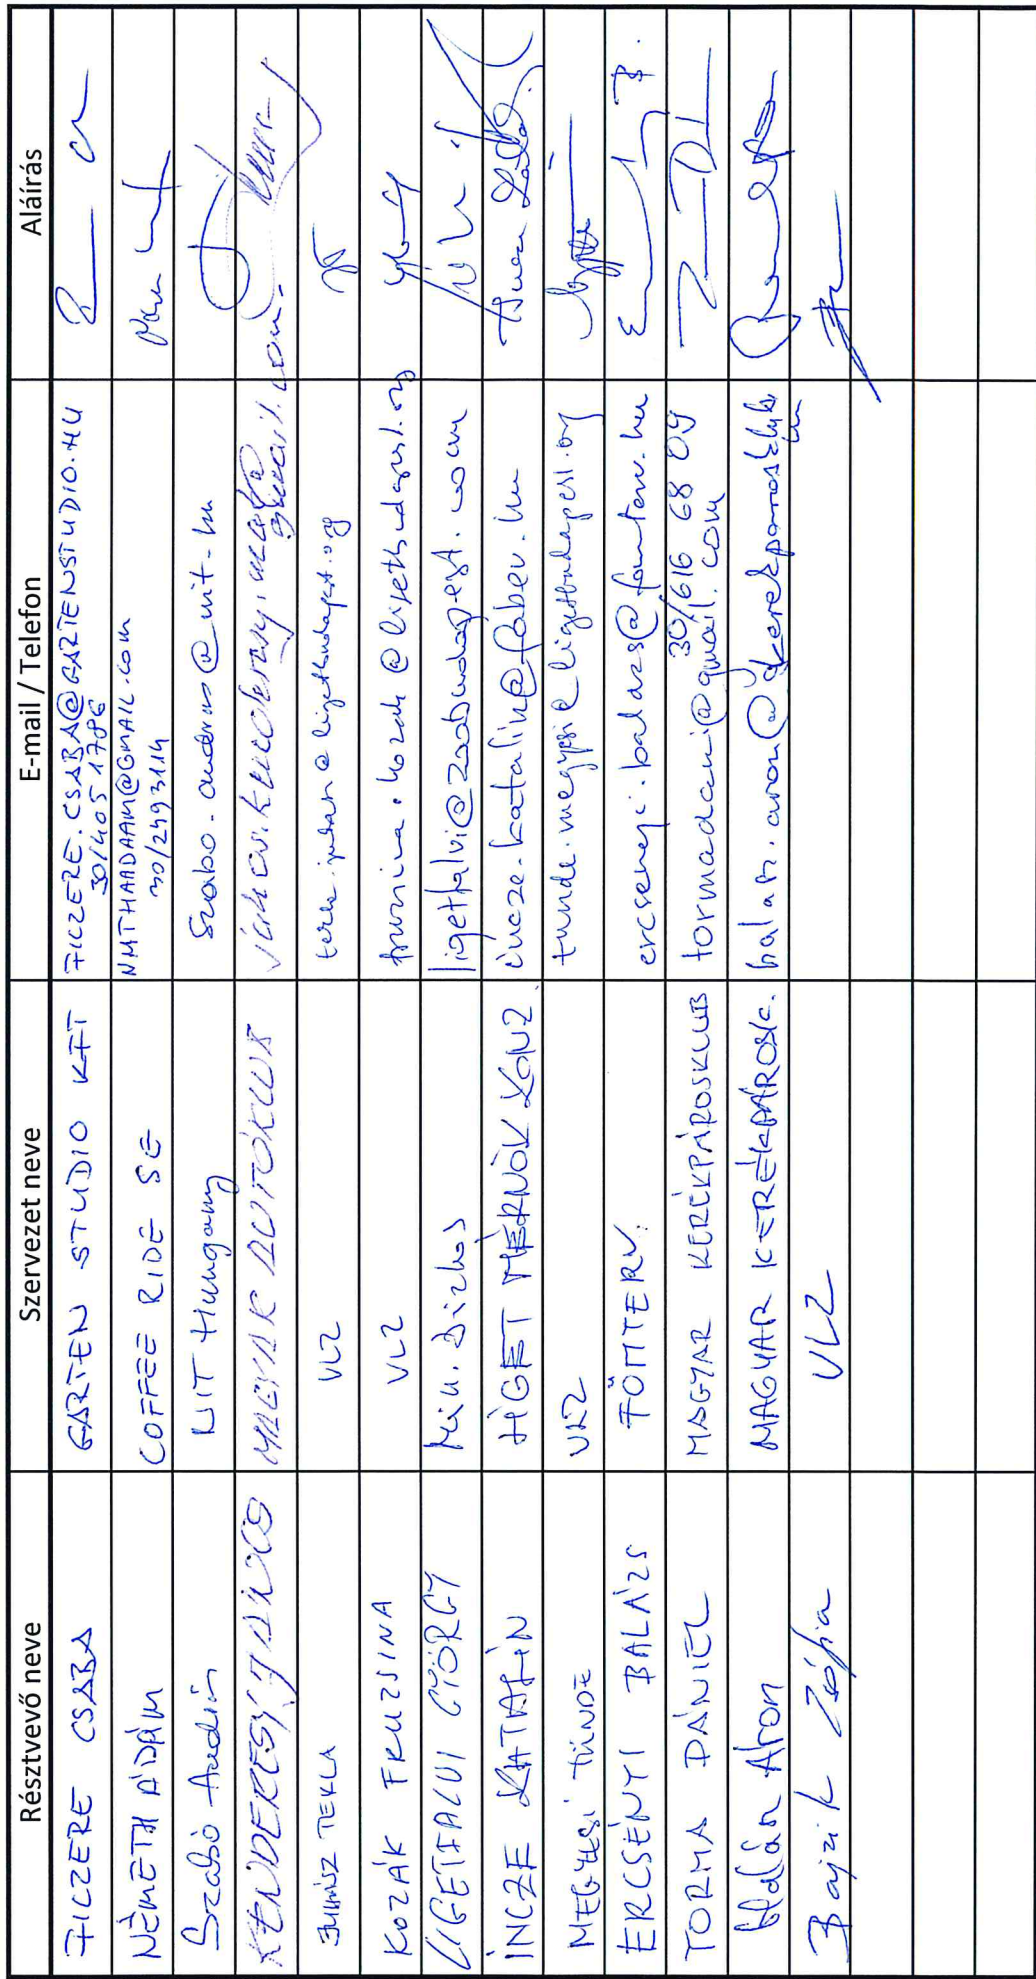 Résztvevő neve Szervezet neve E-mail / Telefon Aláírás
FICZERE CSABA GARTEN STUDIO KFT FICZERE.CSABA@GARTENSTUDIO.HU
30/4051786
NÉMETH ÁDÁM COFFEE RIDE SE NMTHAADAAM@GMAIL.COM
30/2493114
Szabó András UIT Hungary szabo.andras@uit.hu
KENDERESY JÁNOS MAGYAR AUTÓKLUB
gmail.com
JUHÁSZ TEKLA VLZ
KOZÁK FRUZSINA VLZ fruzsina.kozak@ligetbudapest.org
LIGETFALVI GYÖRGY ligetfalvi@zoobudapest.com
INCZE KATALIN incze.katalin@fober.hu
MEGYESI TÜNDE VLZ tunde.megyesi@ligetbudapest.org
ERCSÉNYI BALÁZS FŐMTERV. ercsenyi.balazs@fomterv.hu
30/616 68 09
TORMA DÁNIEL MAGYAR KERÉKPÁROSKLUB tormadani@gmail.com
Halász Áron MAGYAR KERÉKPÁROSK.
Bajzik Zsófia VLZ